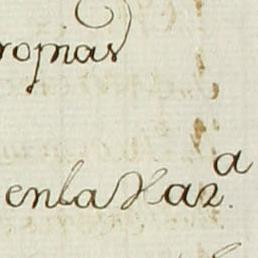 ropias
en la Haz.ª